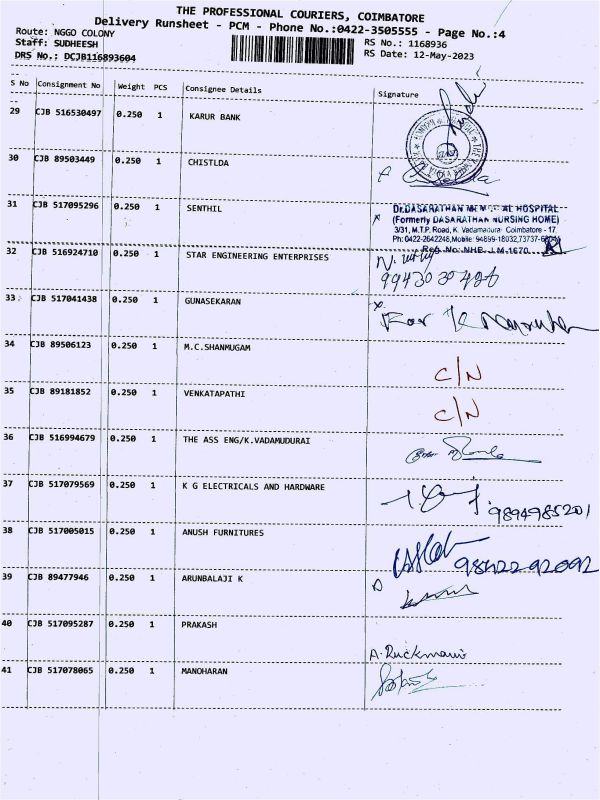 THE PROFESSIONAL COURIERS, COIMBATORE
Delivery Runsheet - PCM - Phone No.:0422-3505555 - Page No.:4
Route: NGGO COLONY
Staff: SUDHEESH
DRS No.: DCJB116893604
RS No.: 1168936
RS Date: 12-May-2023
S No Consignment No Weight PCS Consignee Details Signature
29 CJB 516530497 0.250 1 KARUR BANK
30 CJB 89503449 0.250 1 CHISTLDA
31 CJB 517095296 0.250 1 SENTHIL
Dr.DASARATHAN MEMORIAL HOSPITAL
(Formerly DASARATHAN NURSING HOME)
3/31, M.T.P. Road, K. Vadamadurai Coimbatore - 17.
Ph: 0422-2642246, Mobile: 94899-18032,73737-
Reg. No: NHB LM-1670
32 CJB 516924710 0.250 1 STAR ENGINEERING ENTERPRISES
33 CJB 517041438 0.250 1 GUNASEKARAN
For
34 CJB 89506123 0.250 1 M.C.SHANMUGAM
C/N
35 CJB 89181852 0.250 1 VENKATAPATHI
C/N
36 CJB 516994679 0.250 1 THE ASS ENG/K.VADAMUDURAI
37 CJB 517079569 0.250 1 K G ELECTRICALS AND HARDWARE
9894985201
38 CJB 517005015 0.250 1 ANUSH FURNITURES
9842292092
39 CJB 89477946 0.250 1 ARUNBALAJI K
40 CJB 517095287 0.250 1 PRAKASH
A. Ruckmani
41 CJB 517078065 0.250 1 MANOHARAN